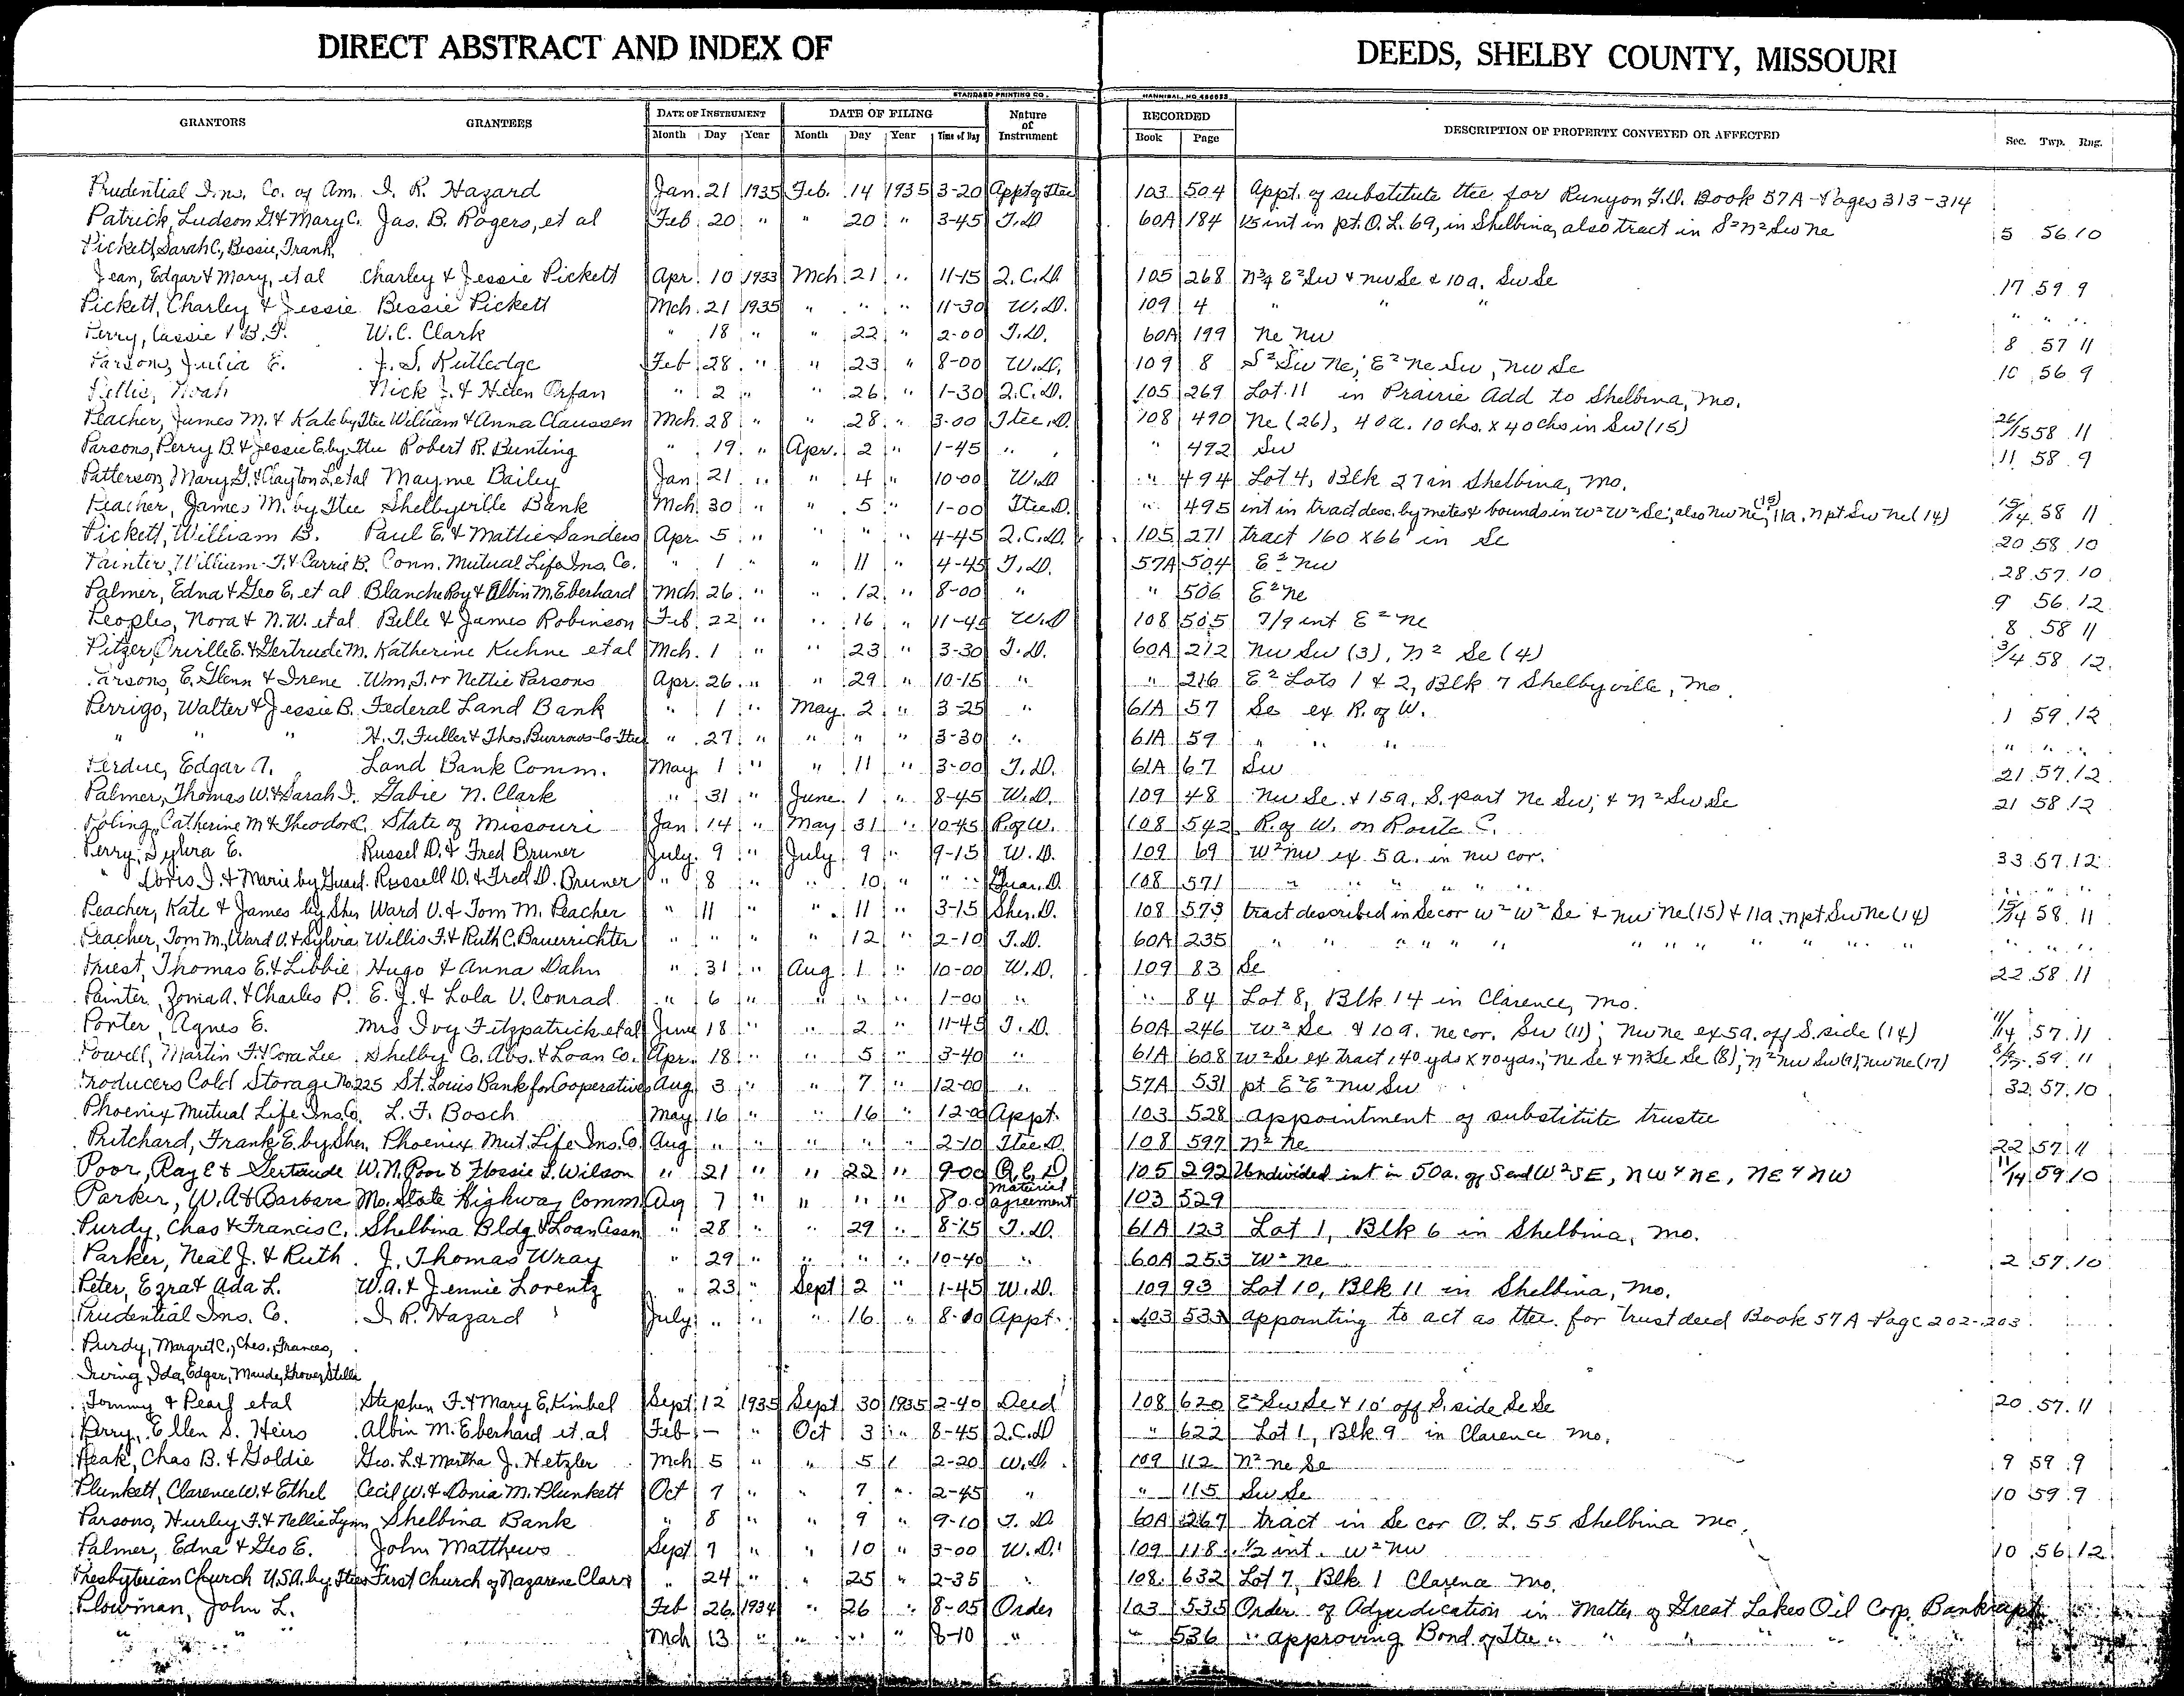 DIRECT ABSTRACT AND INDEX OF DEEDS, SHELBY COUNTY, MISSOURI
STANDARD PRINTING CO. HANNIBAL, MO.
GRANTORS GRANTEES DATE OF INSTRUMENT DATE OF FILING Nature of Instrument RECORDED DESCRIPTION OF PROPERTY CONVEYED OR AFFECTED Sec. Twp. Rng.
Month Day Year Month Day Year Time of Day Book Page
Prudential Ins. Co. of Am. I. R. Hazard Jan. 21 1935 Feb. 14 1935 3-20 Appt of ttee 103 504 Appt. of substitute ttee for Runyon T.D. Book 57A-Pages 313-314
Patrick, Ludson G & Mary C. Jas. B. Rogers, et al Feb. 20 " " 20 " 3-45 T.D 60A 184 int in pt. O.L. 69, in Shelbina, also tract in S²N²SwNe 5 56 10
Pickett, Sarah C., Bessie, Frank,
Jean, Edgar & Mary, et al Charley & Jessie Pickett Apr. 10 1933 Mch 21 " 11-15 Q.C.D. 105 268 N¾ E²Sw & NwSe & 10a. SwSe 17 59 9
Pickett, Charley & Jessie Bessie Pickett Mch. 21 1935 " " " 11-30 W.D. 109 4 " " " " " "
Perry, Cassie & B.F. W.C. Clark " 18 " " 22 " 2-00 T.D. 60A 199 Ne Nw 8 57 11
Parsons, Julia E. J. S. Rutledge Feb 28 " " 23 " 8-00 W.D. 109 8 S²Sw Ne; E² Ne Sw, Nw Se 10 56 9
Pellis, Noah Nick J. & Helen Orfan " 2 " " 26 " 1-30 Q.C.D. 105 269 Lot 11 in Prairie Add to Shelbina, Mo.
Peacher, James M. & Kate by ttee William & Anna Claussen Mch. 28 " " 28 " 3-00 Ttee.D. 108 490 Ne (26), 40a. 10chs. x 40chs in Sw (15) 26/15 58 11
Parsons, Perry B. & Jessie E by ttee Robert R. Bunting " 19 " Apr. 2 " 1-45 " " 492 Sw 11 58 9
Patterson, Mary G. & Clayton L. et al Mayme Bailey Jan 21 " " 4 " 10-00 W.D " 494 Lot 4, Blk 27 in Shelbina, Mo.
Peacher, James M. by ttee Shelbyville Bank Mch. 30 " " 5 " 1-00 Ttee D. " 495 int in tract desc. by metes & bounds in W²W²Se; also NwNe(15), 11a. npt SwNe(14) 15/14 58 11
Pickett, William B. Paul E. & Mattie Sanders Apr. 5 " " " " 4-45 Q.C.D. 105 271 tract 160 x 66' in Se 20 58 10
Painter, William T. & Carrie B. Conn. Mutual Life Ins. Co. " 1 " " 11 " 4-45 T.D. 57A 504 E² Nw 28 57 10
Palmer, Edna & Geo E. et al Blanche Roy & Albin M. Eberhard Mch. 26 " " 12 " 8-00 " " 506 E² Ne 9 56 12
Peoples, Nora & N.W. et al Belle & James Robinson Feb. 22 " " 16 " 11-45 W.D 108 505 7/9 int E² Ne 8 58 11
Pitzer, Orville E. & Gertrude M. Katherine Kuhne et al Mch. 1 " " 23 " 3-30 T.D. 60A 212 Nw Sw (3), N² Se (4) 3/4 58 12
Parsons, E. Glenn & Irene Wm. T. or Nettie Parsons Apr. 26 " " 29 " 10-15 " " 216 E² Lots 1 & 2, Blk 7 Shelbyville, Mo.
Perrigo, Walter & Jessie B. Federal Land Bank " 1 " May 2 " 3-25 " 61A 57 Se ex R. of W. 1 59 12
" " " H. T. Fuller & Thos. Burrows-Co-ttee " 27 " " " " 3-30 " 61A 59 " " " " " "
Perdue, Edgar A. Land Bank Comm. May 1 " " 11 " 3-00 T.D. 61A 67 Sw 21 57 12
Palmer, Thomas W. & Sarah I. Gabie N. Clark " 31 " June 1 " 8-45 W.D. 109 48 Nw Se & 15a. S. part Ne Sw; & N²SwSe 21 58 12
Poling, Catherine M & Theodore C. State of Missouri Jan 14 " May 31 " 10-45 R. of W. 108 542 R. of W. on Route C.
Perry, Sylvia E. Russel D. & Fred Bruner July 9 " July 9 " 9-15 W.D. 109 69 W²Nw ex 5a. in Nw cor. 33 57 12
" Loris I. & Marie by Guard. Russell D. & Fred D. Bruner " 8 " " 10 " " " Guar. D. 108 571 " " " " " " " "
Peacher, Kate & James by Sher Ward V. & Tom M. Peacher " 11 " " 11 " 3-15 Sher.D. 108 573 tract described in Se cor W²W²Se & Nw Ne(15) & 11a. npt SwNe(14) 15/14 58 11
Peacher, Tom M., Ward V. & Sylvia Willis F. & Ruth C. Bauerrichter " " " " 12 " 2-10 T.D. 60A 235 " " " " " " " " " " " " " "
Priest, Thomas E. & Libbie Hugo & Anna Dahn " 31 " Aug 1 " 10-00 W.D. 109 83 Se 22 58 11
Painter, Zonia A. & Charles P. E. J. & Lola V. Conrad " 6 " " " " 1-00 " " 84 Lot 8, Blk 14 in Clarence, Mo.
Porter, Agnes E. Mrs Ivy Fitzpatrick et al June 18 " " 2 " 11-45 T.D. 60A 246 W² Se & 10a. Ne cor. Sw (11); NwNe ex 5a. off S. side (14) 11/14 57 11
Powell, Martin F. & Cora Lee Shelby Co. Abs. & Loan Co. Apr. 18 " " 5 " 3-40 " 61A 608 W²Se ex tract 140 yds x 70 yds.; Ne Se & N²Se Se (8); N²Nw Sw(9), NwNe(17) 59 11
Producers Cold Storage No 225 St. Louis Bank for Cooperatives Aug. 3 " " 7 " 12-00 " 57A 531 pt E²E²Nw Sw 32 57 10
Phoenix Mutual Life Ins. Co. L. F. Bosch May 16 " " 16 " 12-00 Appt. 103 528 appointment of substitute trustee
Pritchard, Frank E. by Sher. Phoenix Mut. Life Ins. Co. Aug " " " " " 2-10 Ttee D. 108 597 N² Ne 22 57 11
Poor, Ray E & Gertrude W. N. Poor & Flossie L. Wilson " 21 " " 22 " 9-00 Q.C.D 105 292 Undivided int in 50a. of S end W²SE, NW 4 NE, NE 4 NW 11/14 59 10
Parker, W. A & Barbara Mo. State Highway Comm. Aug 7 " " " " 8 00 material agreement 103 529
Purdy, Chas & Francis C. Shelbina Bldg & Loan Assn " 28 " " 29 " 8-15 T.D. 61A 123 Lot 1, Blk 6 in Shelbina, Mo.
Parker, Neal J. & Ruth J. Thomas Wray " 29 " " " " 10-40 " 60A 253 W² Ne 2 57 10
Peter, Ezra & Ada L. W.A. & Jennie Lorentz " 23 " Sept 2 " 1-45 W.D. 109 93 Lot 10, Blk 11 in Shelbina, Mo.
Prudential Ins. Co. I. R. Hazard July " " " 16 " 8-00 Appt. 103 533 appointing to act as ttee. for trust deed Book 57A-Page 202-203
Purdy, Margret C., Chas., Frances,
Irving, Ida, Edgar, Maude, Grover, Stella
Tommy & Pearl et al Stephen F. & Mary E. Kimbel Sept 12 1935 Sept 30 1935 2-40 Deed 108 620 E²SwSe & 10' off S. side SeSe 20 57 11
Perry, Ellen S. Heirs Albin M. Eberhard et al Feb - " Oct 3 " 8-45 Q.C.D " 622 Lot 1, Blk 9 in Clarence Mo.
Peak, Chas B. & Goldie Geo. L. & Martha J. Hetzler Mch 5 " " 5 2-20 W.D. 109 112 N² Ne Se 9 59 9
Plunkett, Clarence W. & Ethel Cecil W. & Donia M. Plunkett Oct 7 " " 7 " 2-45 " " 115 Sw Se 10 59 9
Parsons, Hurley F. & Nellie Lynn Shelbina Bank " 8 " " 9 " 9-10 T.D. 60A 267 tract in Se cor O.L. 55 Shelbina Mo.
Palmer, Edna & Geo E. John Matthews Sept 7 " " 10 " 3-00 W.D. 109 118 ½ int. W²Nw 10 56 12
Presbyterian Church U.S.A. by ttees First Church of Nazarene Clar " 24 " " 25 " 2-35 " 108 632 Lot 7, Blk 1 Clarence Mo.
Plowman, John L. Feb 26 1934 " 26 " 8-05 Order 103 535 Order of Adjudication in Matter of Great Lakes Oil Corp. Bankrupt
" " " Mch 13 " " " " 8-10 " " 536 " approving Bond of ttee " " " " "